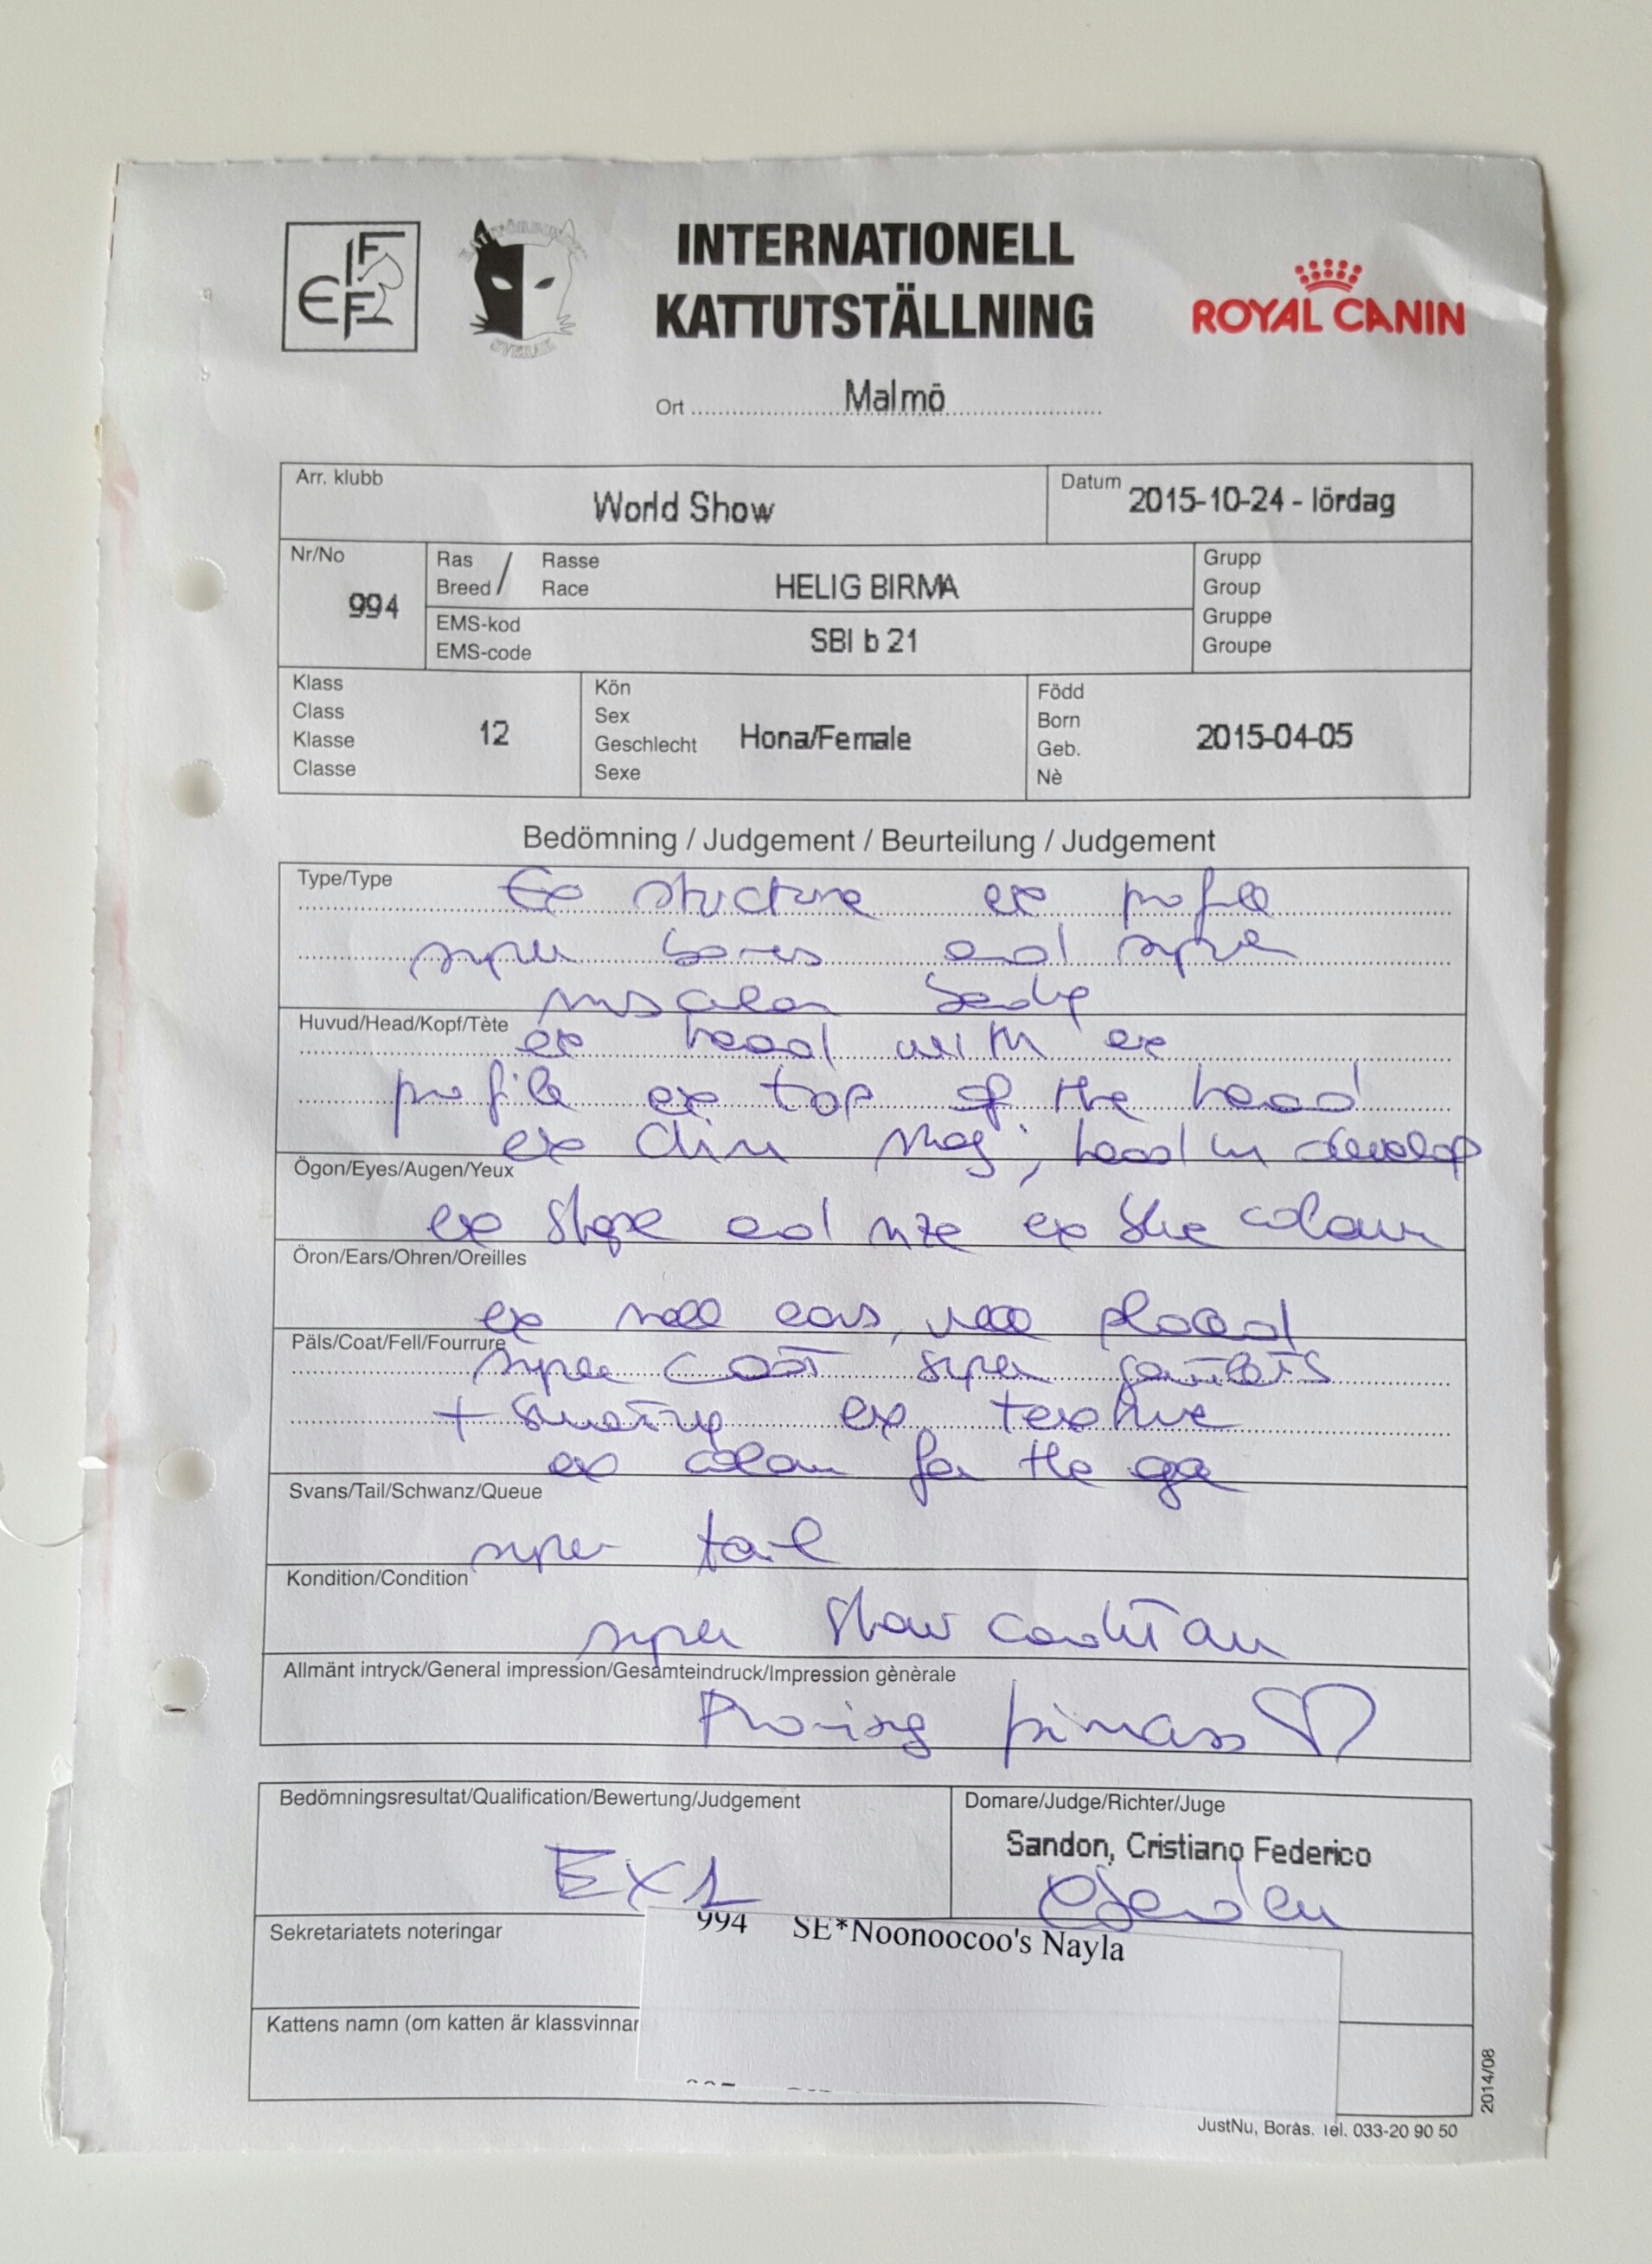 FIFe
KATTFÖRBUNDET
SVERAK
INTERNATIONELL
KATTUTSTÄLLNING
ROYAL CANIN
Ort Malmö
Arr. klubb
World Show
Datum 2015-10-24 - lördag
Nr/No
994
Ras / Rasse
Breed / Race
HELIG BIRMA
EMS-kod
EMS-code
SBI b 21
Grupp
Group
Gruppe
Groupe
Klass
Class
Klasse
Classe
12
Kön
Sex
Geschlecht
Sexe
Hona/Female
Född
Born
Geb.
Nè
2015-04-05
Bedömning / Judgement / Beurteilung / Judgement
Type/Type
Ex structure ex profile
super bones and super
body
Huvud/Head/Kopf/Tète
ex head with ex
profile ex top of the head
ex chin head in develop
Ögon/Eyes/Augen/Yeux
ex shape and size ex blue colour
Öron/Ears/Ohren/Oreilles
ex small ears, well placed
Päls/Coat/Fell/Fourrure
super coat super
+ ex texture
ex colour for the age
Svans/Tail/Schwanz/Queue
super tail
Kondition/Condition
super show condition
Allmänt intryck/General impression/Gesamteindruck/Impression gènèrale
♡
Bedömningsresultat/Qualification/Bewertung/Judgement
EX1
Domare/Judge/Richter/Juge
Sandon, Cristiano Federico
Sekretariatets noteringar
994 SE*Noonoocoo's Nayla
Kattens namn (om katten är klassvinnar
2014/08
JustNu, Borås. Tel. 033-20 90 50